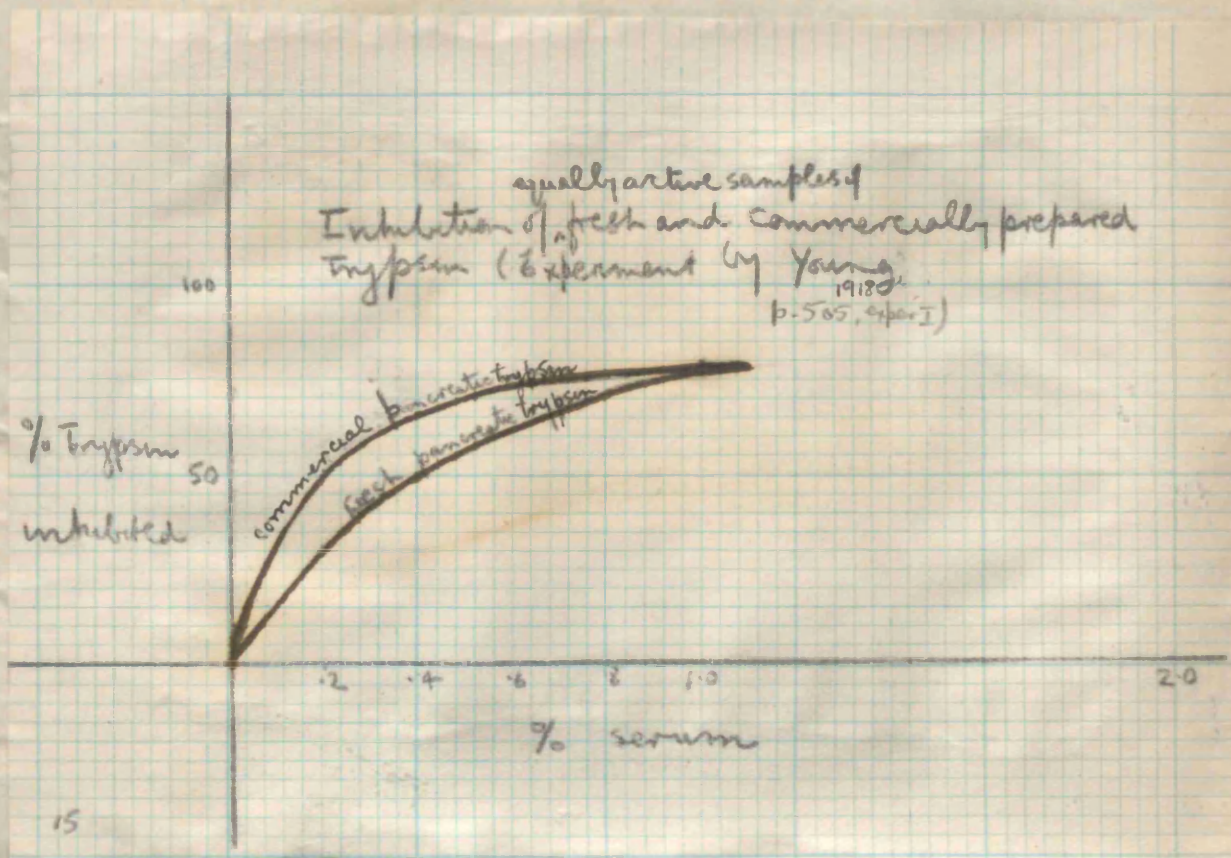 equally active samples of
Inhibition of ‸ fresh and commercially prepared
Trypsin (Experiment by Young
1918
p. 505, exper I)
100
commercial pancreatic trypsin
fresh pancreatic trypsin
% Trypsin
50
inhibited
.2 .4 .6 .8 1.0 2.0
% serum
15